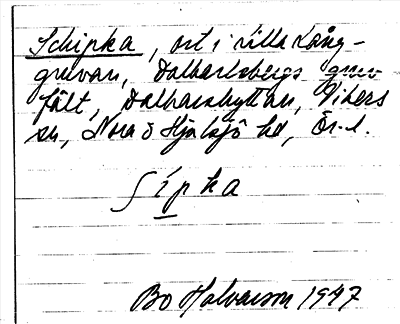 Schipka, ort i Lilla Lång-
gruvan, Dalkarlsbergs gruv
fält, Dalkarshyttan, Vikers
sn, Nora o Hjulsjö hd, Ör. l.
Sípka
Bo Halvarson 1947